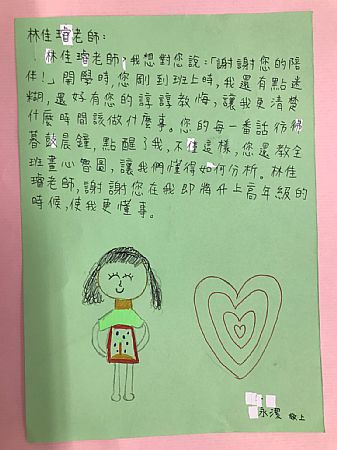 林佳璿老師：
林佳璿老師，我想對您說：「謝謝您的陪
伴！」開學時，您剛到班上時，我還有點迷
糊，還好有您的諄諄教悔，讓我更清楚
什麼時間該做什麼事。您的每一番話彷彿
暮鼓晨鐘，點醒了我，不僅這樣，您還教全
班畫心智圖，讓我們懂得如何分析。林佳
璿老師，謝謝您在我即將升上高年級的
時候，使我更懂事。
永 敬上